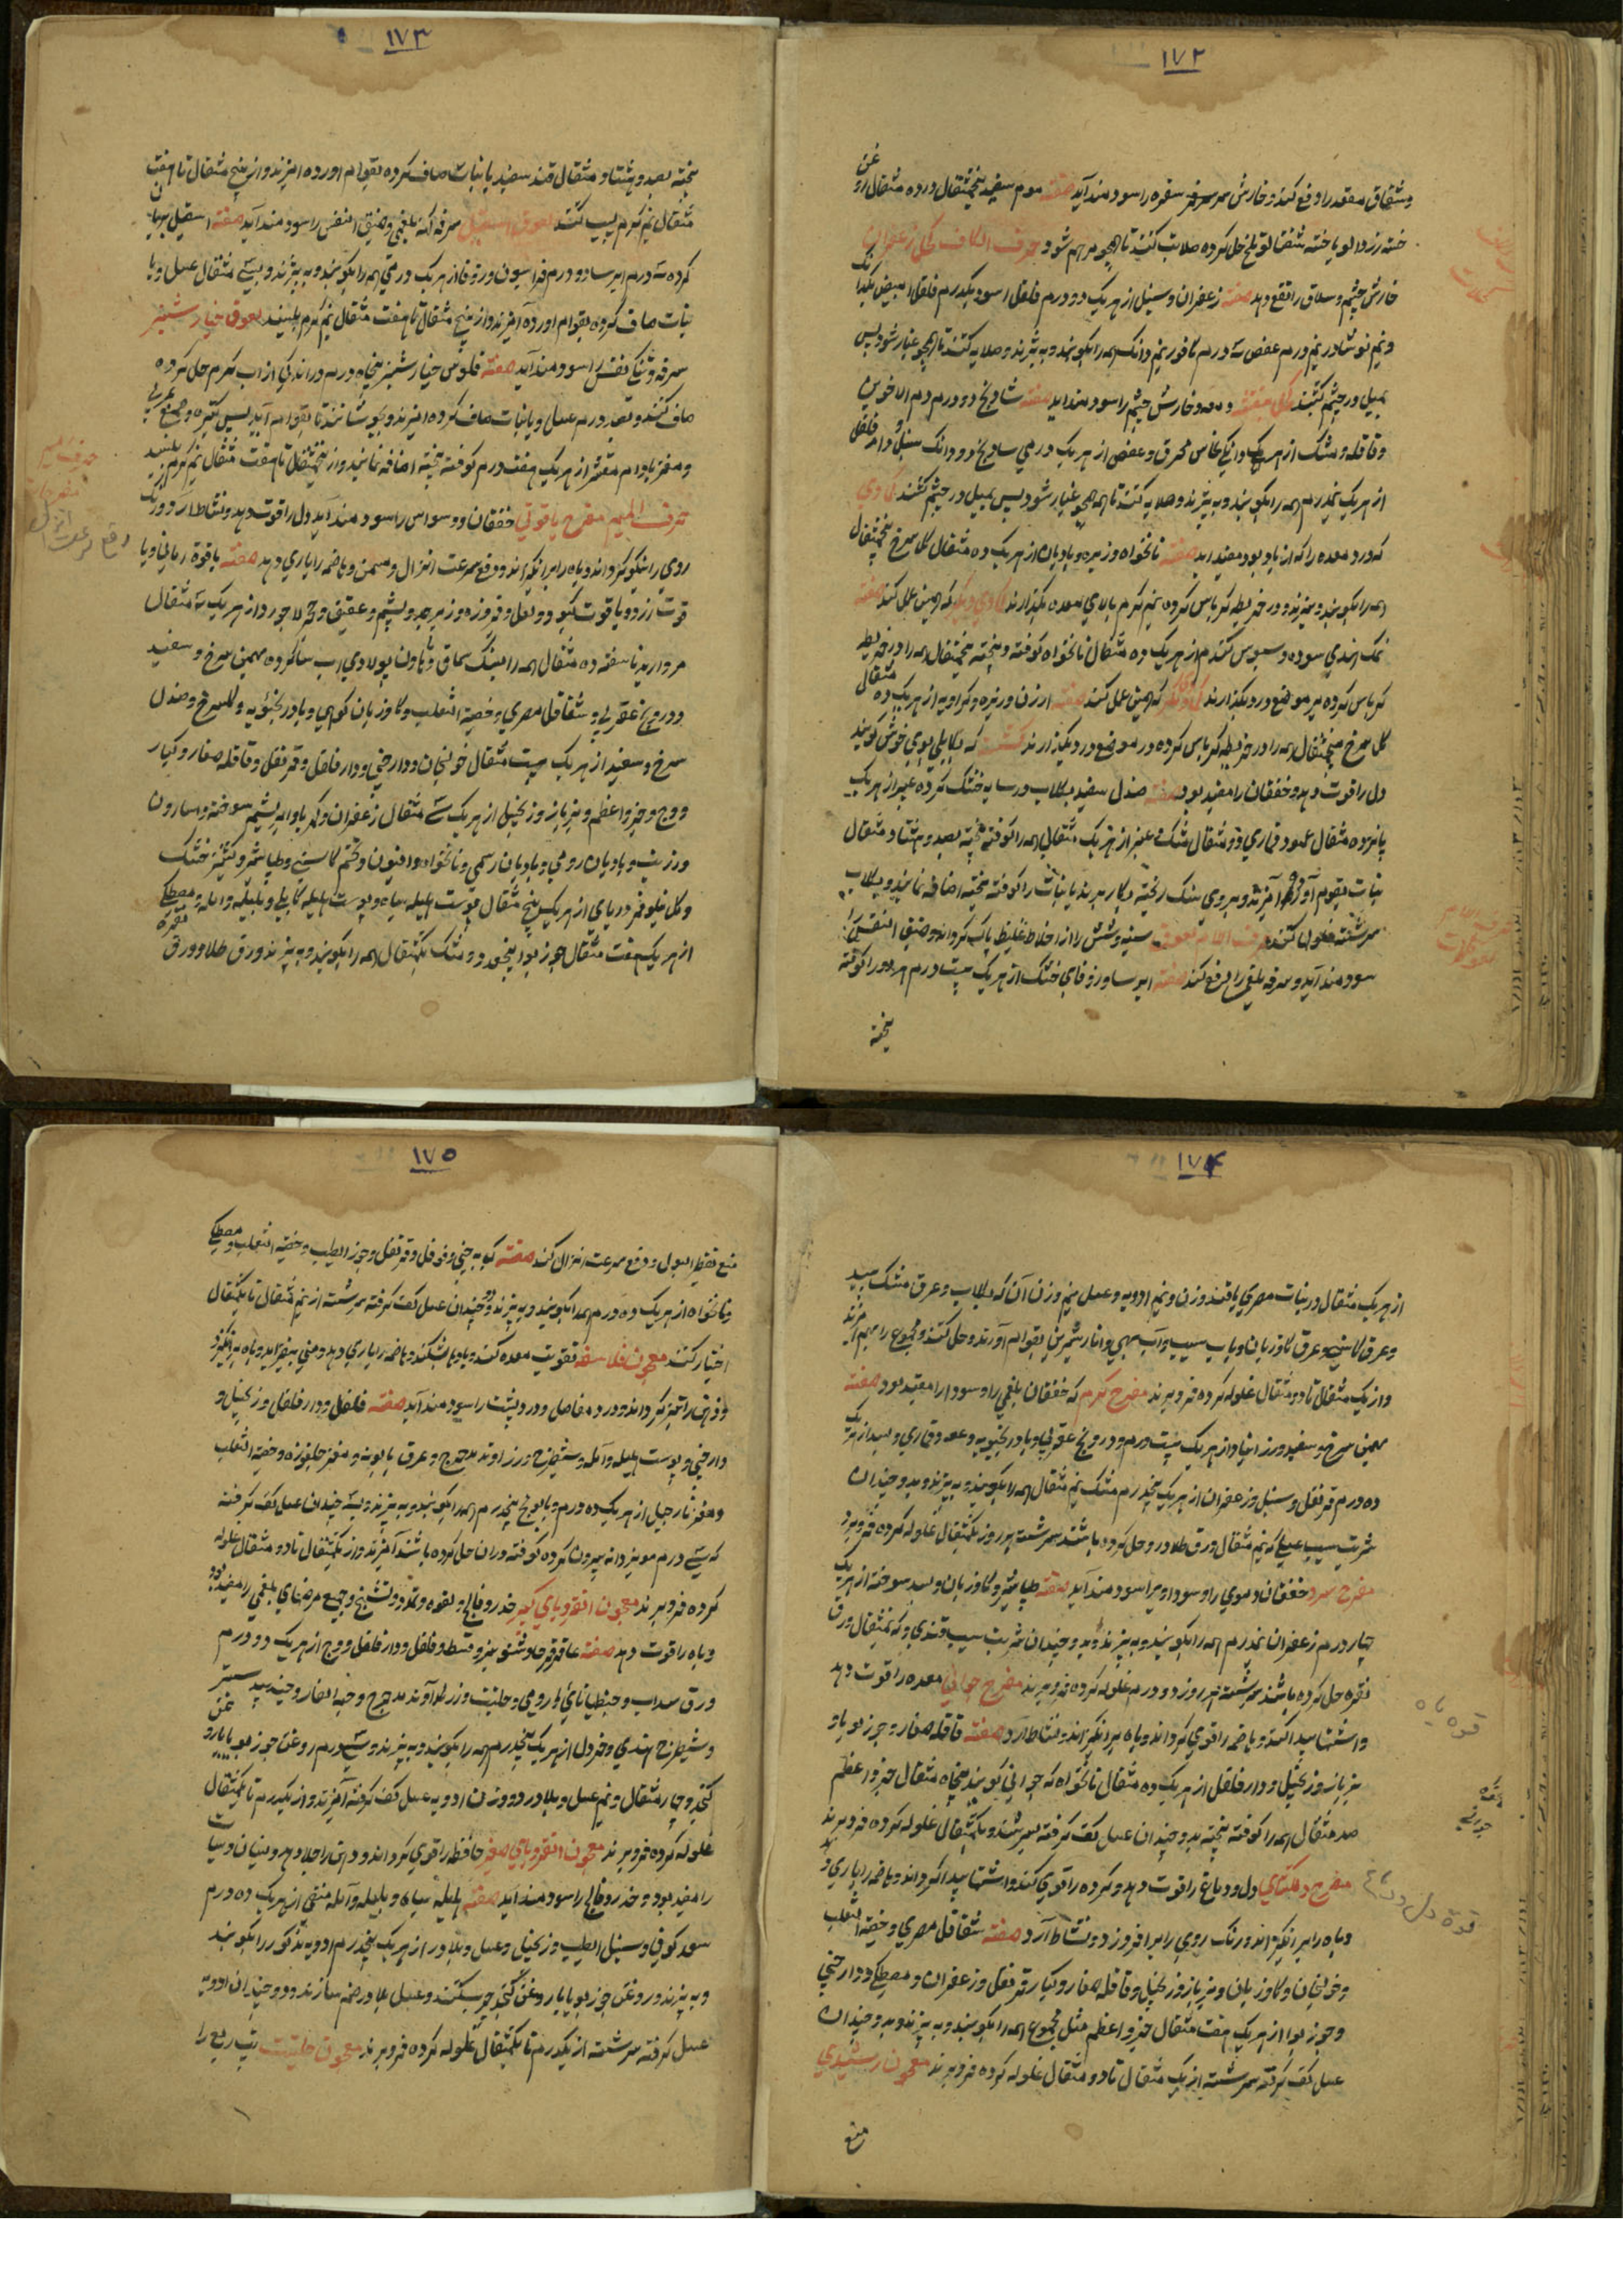 ۱۷۲
وشقاق مقعد را دفع کند و خارش سر سفره را سود مند آید صفته موم سفید پنجمثقال در ده مثقال روغن
خسته زردالو یا خسته شفتالو تلخ حل کرده صلابت کنند تا همچو مرهم شود حرف الکاف کحل زعفران
خارش چشم و سلاق را نفع دهد صفته زعفران و سنبل از هریک دو درم فلفل اسود یکدرم فلفل ابیض یکدانگ
و نیم نوشادر نیم درم عفص سه درم کافور نیم دانک همه را بکوبند و به بیزند و صلایه کنند تا همچو غبار شود پس
بمیل در چشم کشند کحل بنفشه دمعه و خارش چشم را سود مند اید صفته شادنج دو درم دم الاخوین
و قاقله و مشک از هریک دانکی نحاس محرق و عفص از هریک درمی ساذج دو دانک سنبل و دار فلفل
از هریک نیمدرم همه را بکوبند و به بیزند و صلایه کنند تا همچو غبار شود پس بمیل در چشم کشند کمادی
که درد معده را که از باد بود مفید اید صفته نانخواه و زیره و بادیان از هریک ده مثقال کل سرخ پنجمثقال
همه را بکوبند و بیزند و در خریطه کرباس کرده نیم کرم بالای معده بکذارند کمادی دیکر که همین عمل کند صفته
نمک هندی سوده و سبوس کندم از هریک ده مثقال نانخواه کوفته و بیخته پنجمثقال همه را در خریطه
کرباس کرده بر موضع درد بکذارند کمادی دیکر که همین عمل کند صفته ارزن و زیره و کراویه از هریک ده مثقال
کل سرخ پنجمثقال همه را در خریطه کرباس کرده در موضع درد بکذارند کشت که بکابلی بوی خوش کویند
دل را قوت دهد و خفقان را مفید بود صفته صندل سفید بکلاب در سایه خشک کرده عبیر از هریک
پانزده مثقال عود قماری دو مثقال مشک و عنبر از هریک مثقالی همه را کوفته بیخته بصد و هشتاد مثقال
نبات بقوام آورده آمیزند و بر روی سنک ریخته بکار برند یا نبات را کوفته بیخته اضافه نمایند و بکلاب
سرشته غلوله کنند حرف اللام لعوق سینه و شش را از اخلاط غلیظ پاک کرداند و ضیق النفس را
سود مند آید و سرفه بلغمی را دفع کند صفته ایرسا و زوفای خشک از هریک بیست درم هر دو را کوفته
بیخته
۱۷۳
بیخته بصد و هشتاد مثقال قند سفید یا نبات صاف کرده بقوام اورده امیزند و از پنج مثقال تا هفت
مثقال نیم کرم لیپ کنند لعوق اسقیل سرفه کهنه بلغمی و ضیق النفس را سود مند آید صفته اسقیل بریان
کرده سه درم ایرسا دو درم فراسیون و زوفا از هریک درمی همه را بکوبند و به بیزند و بسی مثقال عسل و یا
نبات صاف کرده بقوام اورده آمیزند و از پنج مثقال تا هفت مثقال نیم کرم بلیسند لعوق خیار شنبر
سرفه و تنکی نفس را سود مند آید صفته فلوس خیار شنبر پنجاه درم در اندکی از اب کرم حل کرده
صاف کنند و بصد درم عسل و یا نبات صاف کرده امیزند و بجوشانند تا بقوام آید پس کتیره و صمغ عربی
و مغز بادام مقشر از هریک هفت درم کوفته بیخته اضافه نمایند و از پنجمثقال تا هفت مثقال نیم کرم بلیسند
حرف المیم مفرح یاقوتی خفقان و وسواس را سود مند آید دل را قوت دهد و نشاط آرد و رنک
روی را نیکو کرداند و باه را برانکیزاند و دفع سرعت انزال و سمن و باضمه را یاری دهد صفته یاقوة رمانی و یا
قوت زرد و یاقوت کبود و لعل و فروزه و زبرجد و یشم و عقیق و حجر لاجورد از هریک سه مثقال
مروارید ناسفته ده مثقال همه را بسنک سماق و هاون پولادی اب سا کرده بهمن سرخ و سفید
و درونج عقربی و شقاقل مصری و خصیة الثعلب و کاوزبان کوهی و بادرنجبویه و کلسرخ و صندل
سرخ و سفید از هریک بیست مثقال خولنجان و دارچینی و دار فلفل و قرنفل و قاقله صغار و کبار
و وج و جزو اعظم و بزباز و زنجبیل از هریک سی مثقال زعفران و کهربا و ابریشم سوخته و اسارون
و زرنب و بادیان رومی و بادیان رسمی و نانخواه و افتیون و تخم کاسنی و طباشیر و کشنیز خشک
و کل نیلوفر دریای از هریک پنج مثقال پوست هلیله سیاه و پوست هلیله کابلی و بلیله و امله و مصطکی
از هریک هفت مثقال جوز بوا پنجعدد و مشک یکمثقال همه را بکوبند و به بیزند ورق طلا و ورق نقره
۱۷۴
از هریک مثقال در نبات مصری یا قند وزن و نیم ادویه و عسل نیم وزن آن که بکلاب و عرق مشک بید
و عرق کاسنی و عرق کاوزبان و باب سیب و آب بهی و انار شیرین بقوام آورند و حل کنند و مجموع را بهم آمیزند
و از یک مثقال تا دو مثقال غلوله کرده فرو برند مفرح کرم که خفقان بلغمی را و سودا را مفید بود صفته
بهمن سرخ و سفید و زرانباد از هریک بیست درم و درونج عقربی و بادرنجبویه و عود قماری و بسد از هریک
ده درم قرنفل و سنبل و زعفران از هریک پنجدرم مشک نیم مثقال همه را بکوبند و به بیزند و بدو چندان
شربت سیب عسلی که نیم مثقال ورق طلا در و حل کرده باشند سرشته هر روز یکمثقال غلوله کرده فرو برند
مفرح سرد خفقان دموی را و سوداویرا سود مند آید صفته طباشیر و کاوزبان و بسد سوخته از هریک
چهار درم زعفران نیمدرم همه را بکوبند و به بیزند و بدو چندان شربت سیب قندی که نیمثقال ورق
نقره حل کرده باشند سرشته هر روز دو درم غلوله کرده فرو برند مفرح جوانی معده را قوت دهد
و اشتها پیدا کند و باضمه را قوی کرداند و باه برانکیزاند و نشاط آرد صفته قاقله صغار و جوز بویا و
بزباز و زنجبیل و دار فلفل از هریک ده مثقال نانخواه که جوانی کویند پنجاه مثقال جزو اعظم
صد مثقال همه را کوفته بیخته بدو چندان عسل کف کرفته بسرشند و یکمثقال غلوله کرده فرو برند
مفرح دلکشای دل و دماغ را قوت دهد و کرده را قوی کند و اشتها پیدا کرداند و باضمه را یاری دهد
و باه را برانکیزاند و رنک روی را برافروزد و نشاط آرد صفته شقاقل مصری و خصیة الثعلب
و خولنجان و کاوزبان و بزباز و زنجبیل و قاقله صغار و کبار و قرنفل و زعفران و مصطکی و دارچینی
و جوز بوا از هریک هفت مثقال جزو اعظم مثل مجموع همه را بکوبند و به بیزند و بدو چندان
عسل کف کرفته سرشته از یک مثقال تا دو مثقال غلوله کرده فرو برند معجون رشیدی
منع
قوة باه
قوة دل و دماغ
۱۷۵
منع تقطیر البول و دفع سرعت انزال کند صفته کبابه چینی و فوفل و قرنفل و جوز الطیب و خصیة الثعلب و مصطکی
و نانخواه از هریک ده درم همه را بکوبند و به بیزند و دو چندان عسل کف کرفته سرشته از نیم مثقال تا یکمثقال
اختیار کنند معجون فلاسفه تقویت معده کند و بادها بشکند و باضمه را یاری دهد و منی بیفزاید و باه برانکیزد
و ذهن را تیز کرداند و درد مفاصل و درد پشت را سود مند آید صفته فلفل و دار فلفل و زنجبیل و
دارچینی و پوست هلیله و آمله و شیطرج و زراوند مدحرج و عرق بابونه و مغز چلغوزه و خصیة الثعلب
و مغز نارجیل از هریک ده درم و بابونج پنجدرم همه را بکوبند و به بیزند و بسه چندان عسل کف کرفته
که سی درم مویز دانه بیرون کرده کوفته در ان حل کرده باشند آمیزند و از یکمثقال تا دو مثقال غلوله
کرده فرو برند معجون انقردیای کبیر خدر و فالج و لقوه و تمدد و تشنج و جمیع مرضهای بلغمی را مفید بود
و باه را قوت دهد صفته عاقرقرحا و شونیز و قسط و فلفل و دار فلفل و وج از هریک دو درم
ورق سداب و جنطیانای رومی و حلتیت و زراوند مدحرج و حب الغار و جند بیدستر
و شیطرج هندی و خردل از هریک پنجدرم همه را بکوبند و به بیزند و سی درم روغن جوز بویا یا روغن
کنجد و چهار مثقال و نیم عسل و بلادر دو وزن ادویه عسل کف کرفته آمیزند و از یکدرم تا یکمثقال
غلوله کرده فرو برند معجون انقردیای صغیر حافظه را قوی کرداند و ذهن را جلا دهد و نسیان و سبات
را مفید بود و خدر و فالج را سود مند آید صفته هلیله سیاه و بلیله و آمله منقی از هریک ده درم
سعد کوفی و سنبل الطیب و زنجبیل و عسل و بلادر از هریک پنجدرم ادویه مذکور را بکوبند
و به بیزند و روغن جوز بویا یا روغن کنجد چرب کنند و عسل بلادر ضم سازند و دو چندان ادویه
عسل کرفته سرشته از یکدرم تا یکمثقال غلوله کرده فرو برند معجون حلتیت تپ ربع را